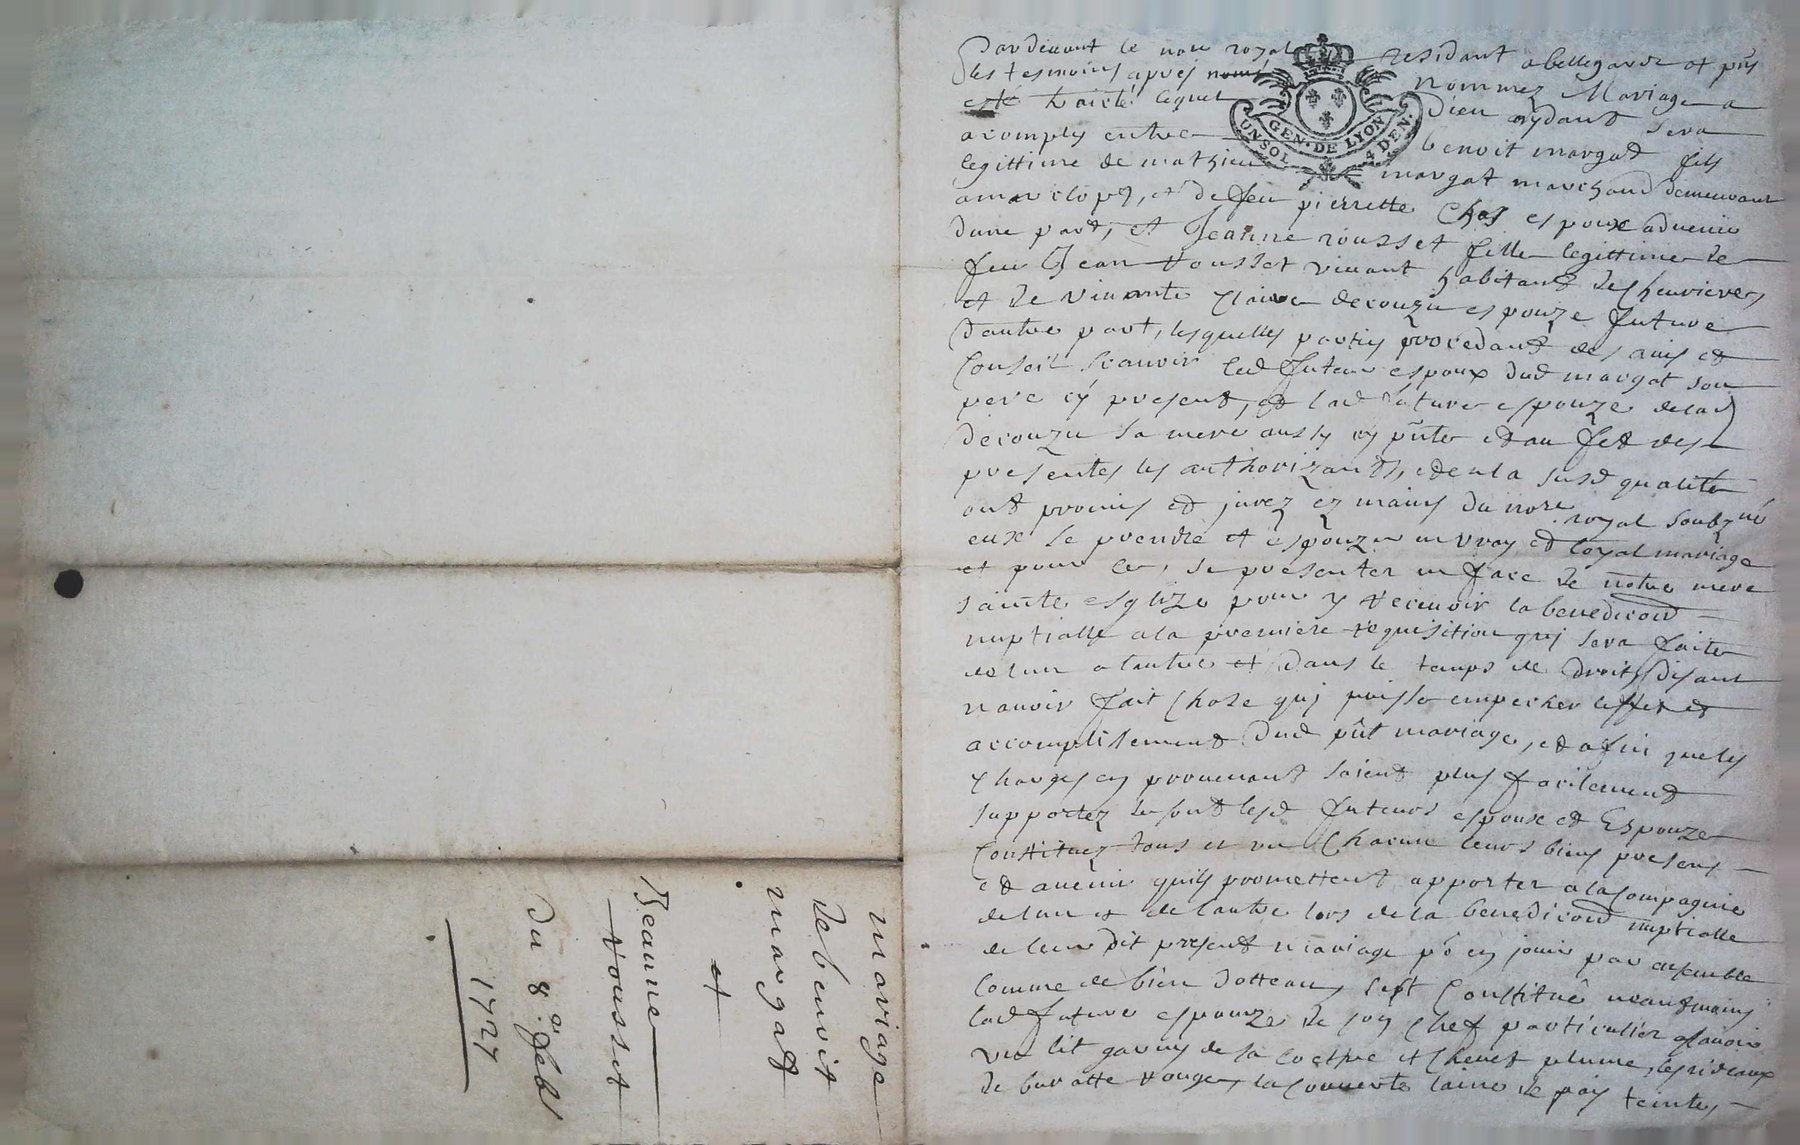 mariage
de benoit
margatt
et
Jeanne
rousset
du 8e. febr
1727
Pardevant le nore royal residant a bellegarde et pns
les tesmoins apres nommez Mariage a
esté traicté lequel Dieu aydant sera
acomply entre benoit margat fils
legittime de mathieu margat marchand demeurant
a marclopt, et de feu pierrette Chas espoux advenir
dune part, et Jeanne rousset fille legittime de
feu Jean rousset vivant habitant de chevrieres
et de vivante Claire decouzu espouze future
dautre part, lesquelles parties procedant des avis et
Conseil scavoir led futeur espoux dud margat son
pere cy present, et lad future espouze delad
decouzu sa mere aussy cy pnte et au fet des
presentes les authorizants, et en la susd qualite
ont promis et jurez es mains du nore royal soubzné
eux se prendre et espouzer en vray et loyal mariage
et pour ce, se presenter en face de notre mere
sainte esglize pour y recevoir la benediction
nuptialle a la premiere requisition quj sera faite
de lun a lautre et dans le temps de droit, disant
navoir fait Chose quj puisse empecher leffet et
accomplisement dud pnt mariage, et afin que les
Charges en provenant soient plus facilement
supportez se sont lesd futeurs espoux et Espouze
Constituez tous et un Chacun leurs biens presens
et avenir quils promettent apporter a la Compagnie
de lun et de lautre lors de la benediction nuptialle
de leur dit present mariage po en jouir par ensemble
Comme de bien dotteaux, sest Constitué neantmoins
lad future espouze de son Chef particulier scavoir
un lit garny de sa coethre et Chevet plume, les rideaux
de buratte rouge, la Couverte laine de pays teinte,
UN SOL GEN. DE LYON 4 DEN.